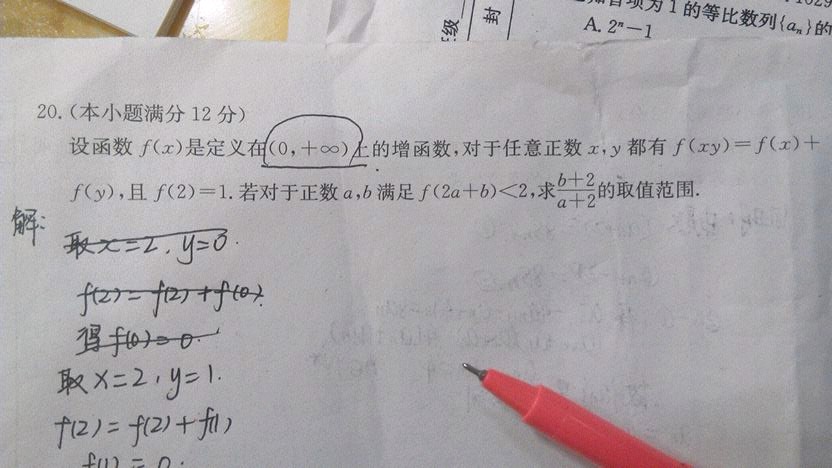 级
封
项为1的等比数列{aₙ}的
A. 2ⁿ-1
20.(本小题满分12分)
设函数 f(x)是定义在(0,+∞)上的增函数,对于任意正数 x,y 都有 f(xy)=f(x)+
f(y),且 f(2)=1.若对于正数 a,b 满足 f(2a+b)<2,求(b+2)/(a+2)的取值范围.
解:
取x=2, y=0.
f(2)=f(2)+f(0).
得f(0)=0.
取x=2, y=1.
f(2)=f(2)+f(1)
f(1)=0.